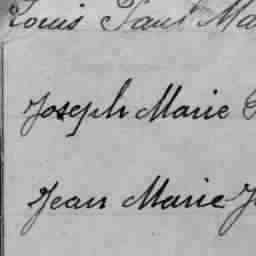 Louis Paul Ma
Joseph Marie
Jean Marie J